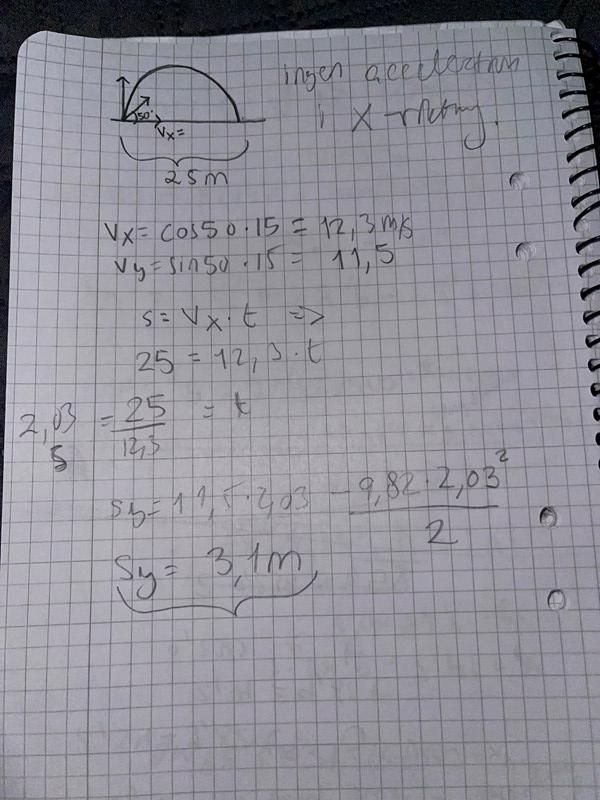 ingen aceleration
i X-riktning.
50°
Vx=
25m
Vx= cos50·15 = 12,3m/s
Vy=sin50·15= 11,5
s= Vx·t =>
25 = 12,3·t
2,03 s = 25/12,3 = t
Sy= 11,5·2,03 - 9,82·2,03²/2
Sy= 3,1m